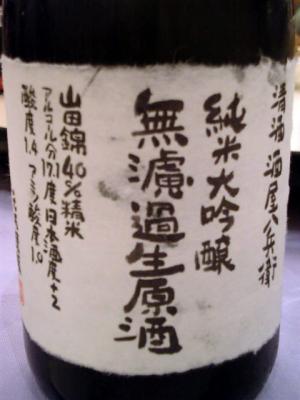 清酒 酒屋八兵衛
純米大吟醸
無濾過生原酒
山田錦40%精米
アルコール分17.1度 日本酒度+2
酸度1.4 アミノ酸度1.0